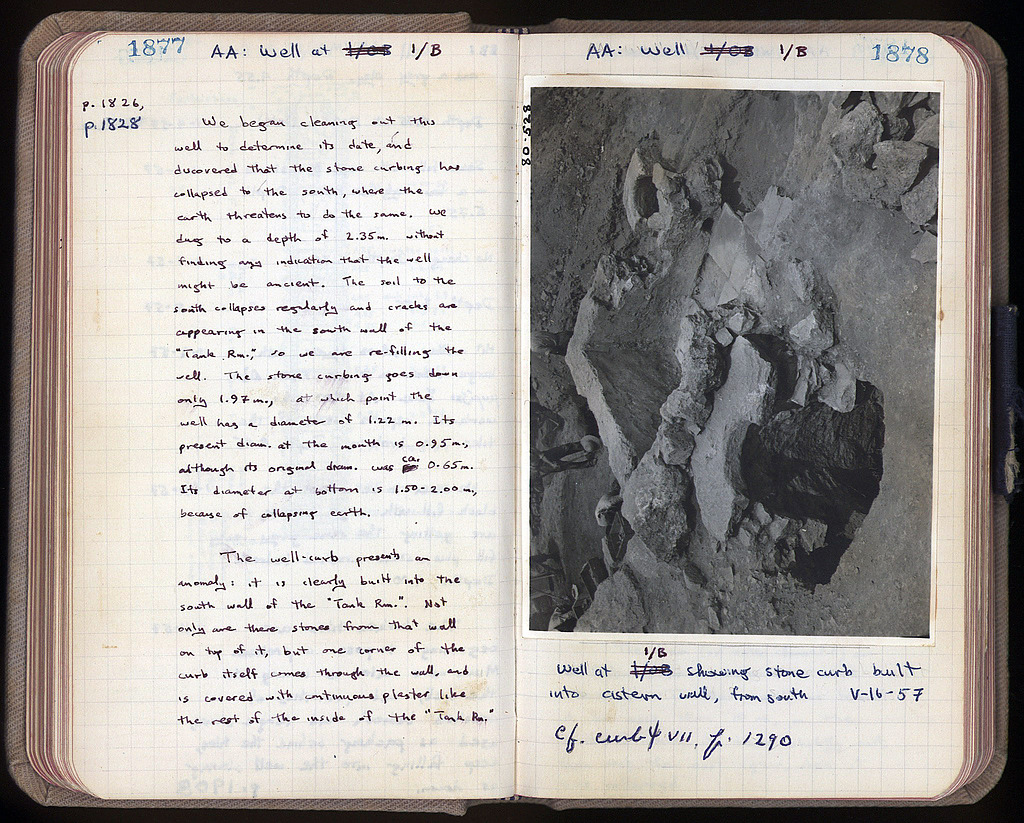 1877 AA: Well at 1/OB 1/B
p. 1826,
p. 1828
We began cleaning out this
well to determine its date, and
ducovered that the stone curbing has
collapsed to the south, where the
earth threatens to do the same. We
dug to a depth of 2.35m. without
finding any indication that the well
might be ancient. The soil to the
south collapses regularly and cracks are
appearing in the south wall of the
"Tank Rm.", so we are re-filling the
well. The stone curbing goes down
only 1.97m., at which point the
well has a diameter of 1.22 m. Its
present diam. at the mouth is 0.95m.,
although its original diam. was ca. 0.65m.
Its diameter at bottom is 1.50-2.00m.,
because of collapsing earth.
The well-curb presents an
anomaly: it is clearly built into the
south wall of the "Tank Rm.". Not
only are there stones from that wall
on top of it, but one corner of the
curb itself comes through the wall, and
is covered with continuous plaster like
the rest of the inside of the "Tank Rm."
AA: Well 1/OB 1/B 1878
80-528
1/B
Well at 1/OB showing stone curb built
into cistern wall, from south V-16-57
Cf. curb ψ VII, p. 1290